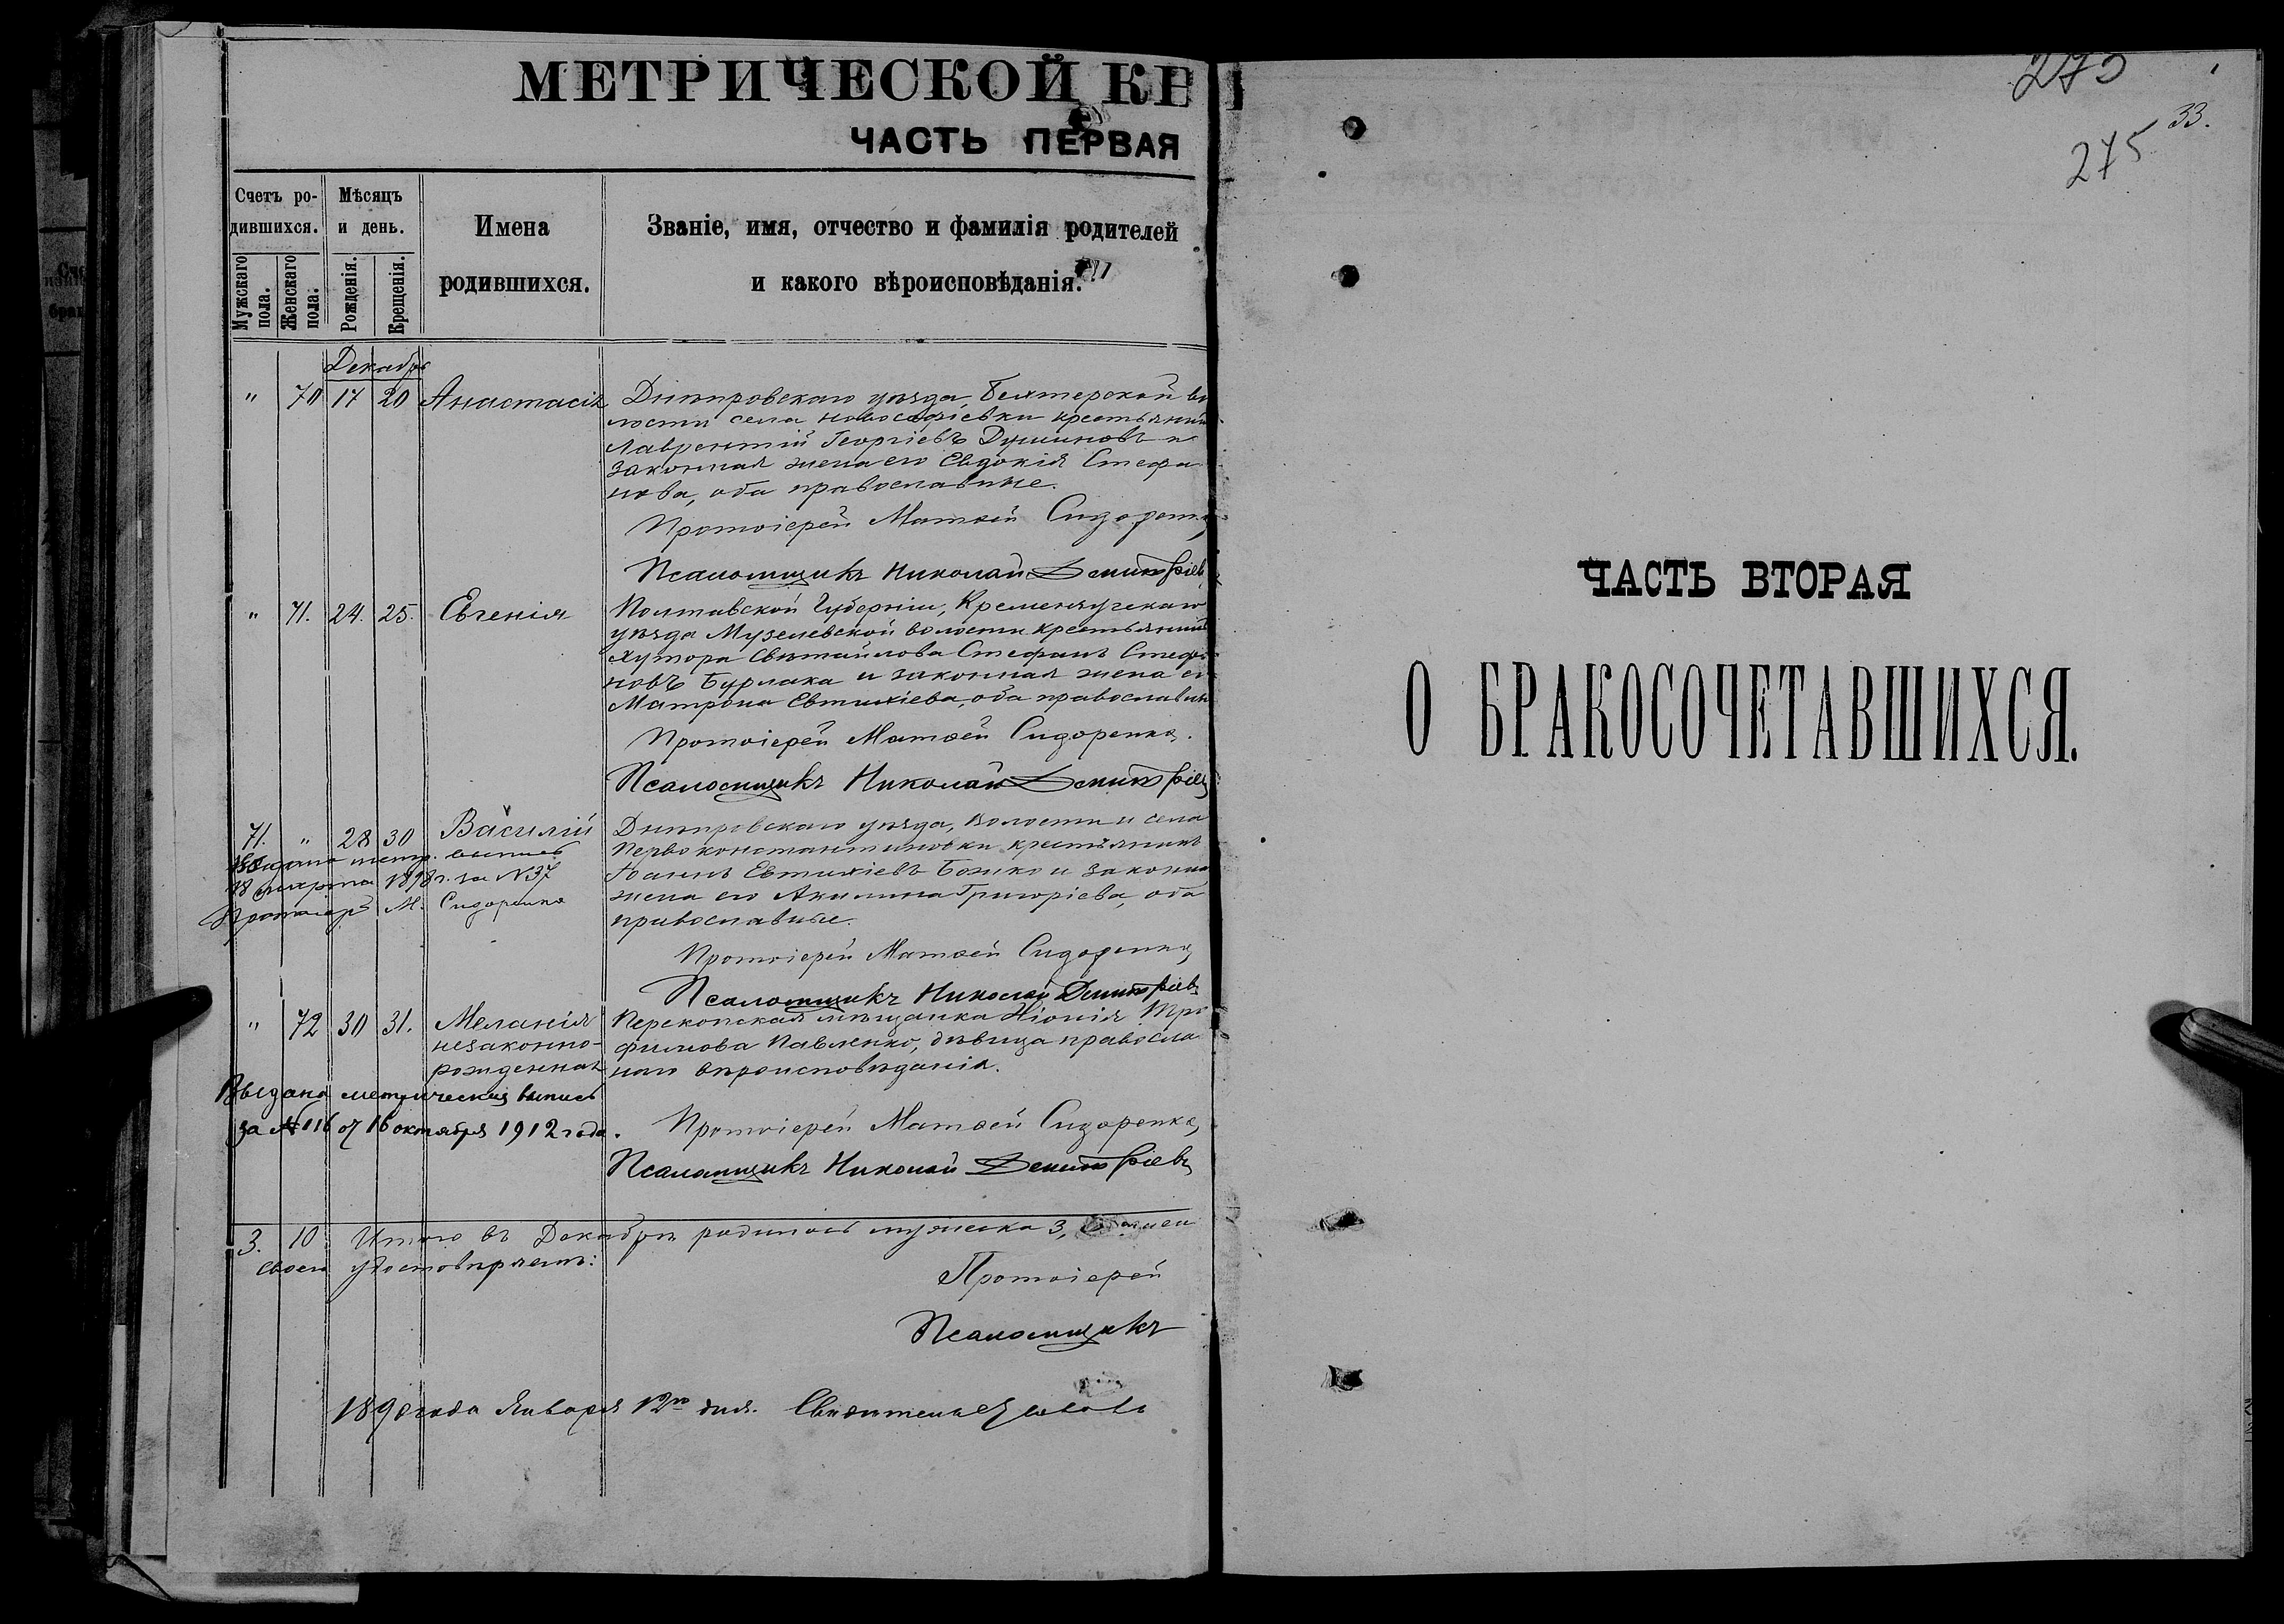 МЕТРИЧЕСКОЙ КН
ЧАСТЬ ПЕРВАЯ
Счетъ ро-
дившихся.
Мужскаго пола.
Женскаго пола.
Мѣсяцъ
и день.
Рожденія.
Крещенія.
Имена
родившихся.
Званіе, имя, отчество и фамилія родителей
и какого вѣроисповѣданія.
Декабрь
" 70 17 20 Анастасія
Днѣпровскаго уѣзда, Бехтерской во
лости села Новософіевки крестьянин
Лаврентій Георгіевъ и
законная жена его Евдокія Стефа
нова, оба православные.
Протоіерей Матѳей Сидоренко
Псаломщикъ Николай Димитріевъ
" 71. 24. 25. Евгенія
Полтавской Губерніи, Кременчугскаго
уѣзда волости крестьянинъ
хутора Стефанъ Стефа
новъ Бурлака и законная жена ег
Матрона Евтихіева, оба православн
Протоіерей Матѳей Сидоренко.
Псаломщикъ Николай Димитріевъ
71. " 28 30 Василій
Выдана метр. выпись
18 марта 1898 г. за № 37
Протоіерей М. Сидоренко
Днѣпровскаго уѣзда, волости и села
Первоконстантиновки крестьянинъ
Іоаннъ Евтихіевъ Божко и законна
жена его Акилина Григоріева, оба
православные.
Протоіерей Матѳей Сидоренко
Псаломщикъ Николай Димитріевъ
" 72 30 31. Меланія
незаконно-
рожденная
Выдана метрическая выпись
за № 116 от 16 октября 1912 года.
Перекопская мѣщанка Тро
фимова Павленко, дѣвица правосла
наго вѣроисповѣданія.
Протоіерей Матѳей Сидоренко
Псаломщикъ Николай Димитріевъ
3. 10. Итого въ Декабрѣ родилось мужеска 3,
удостовѣряемъ:
Протоіерей
Псаломщикъ
1898 года Января 12го дня.
275
275
33.
ЧАСТЬ ВТОРАЯ
О БРАКОСОЧЕТАВШИХСЯ.